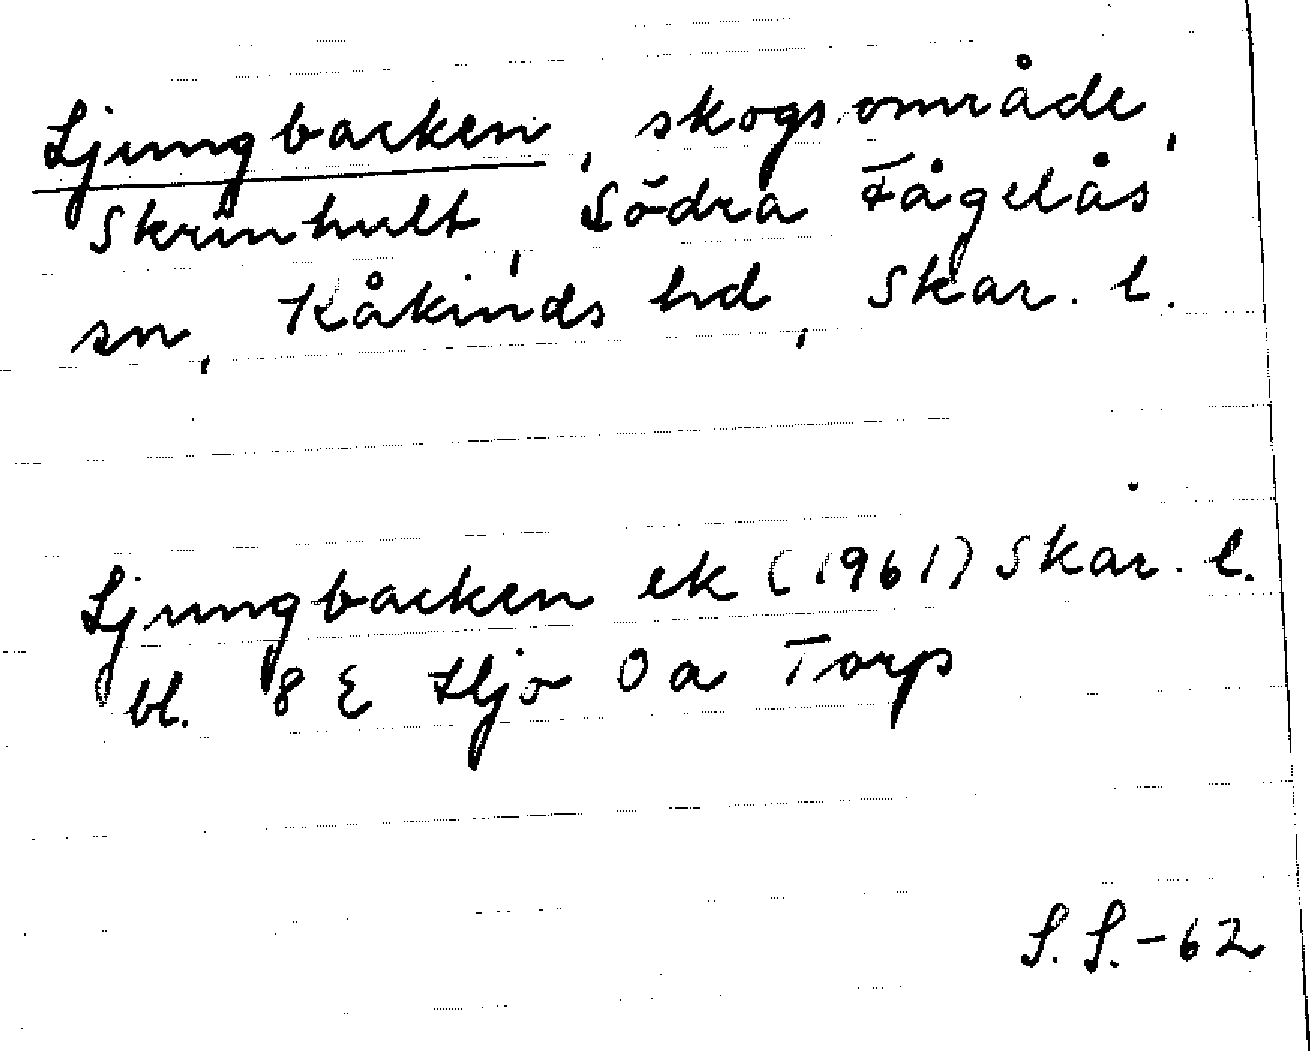 Ljungbacken, skogsområde,
Skrinhult, Södra Fågelås
sn, Kåkinds hd, Skar. l.
Ljungbacken ek (1961) Skar. l.
bl. 8 E Hjo 0 a Torp
S. S. - 62